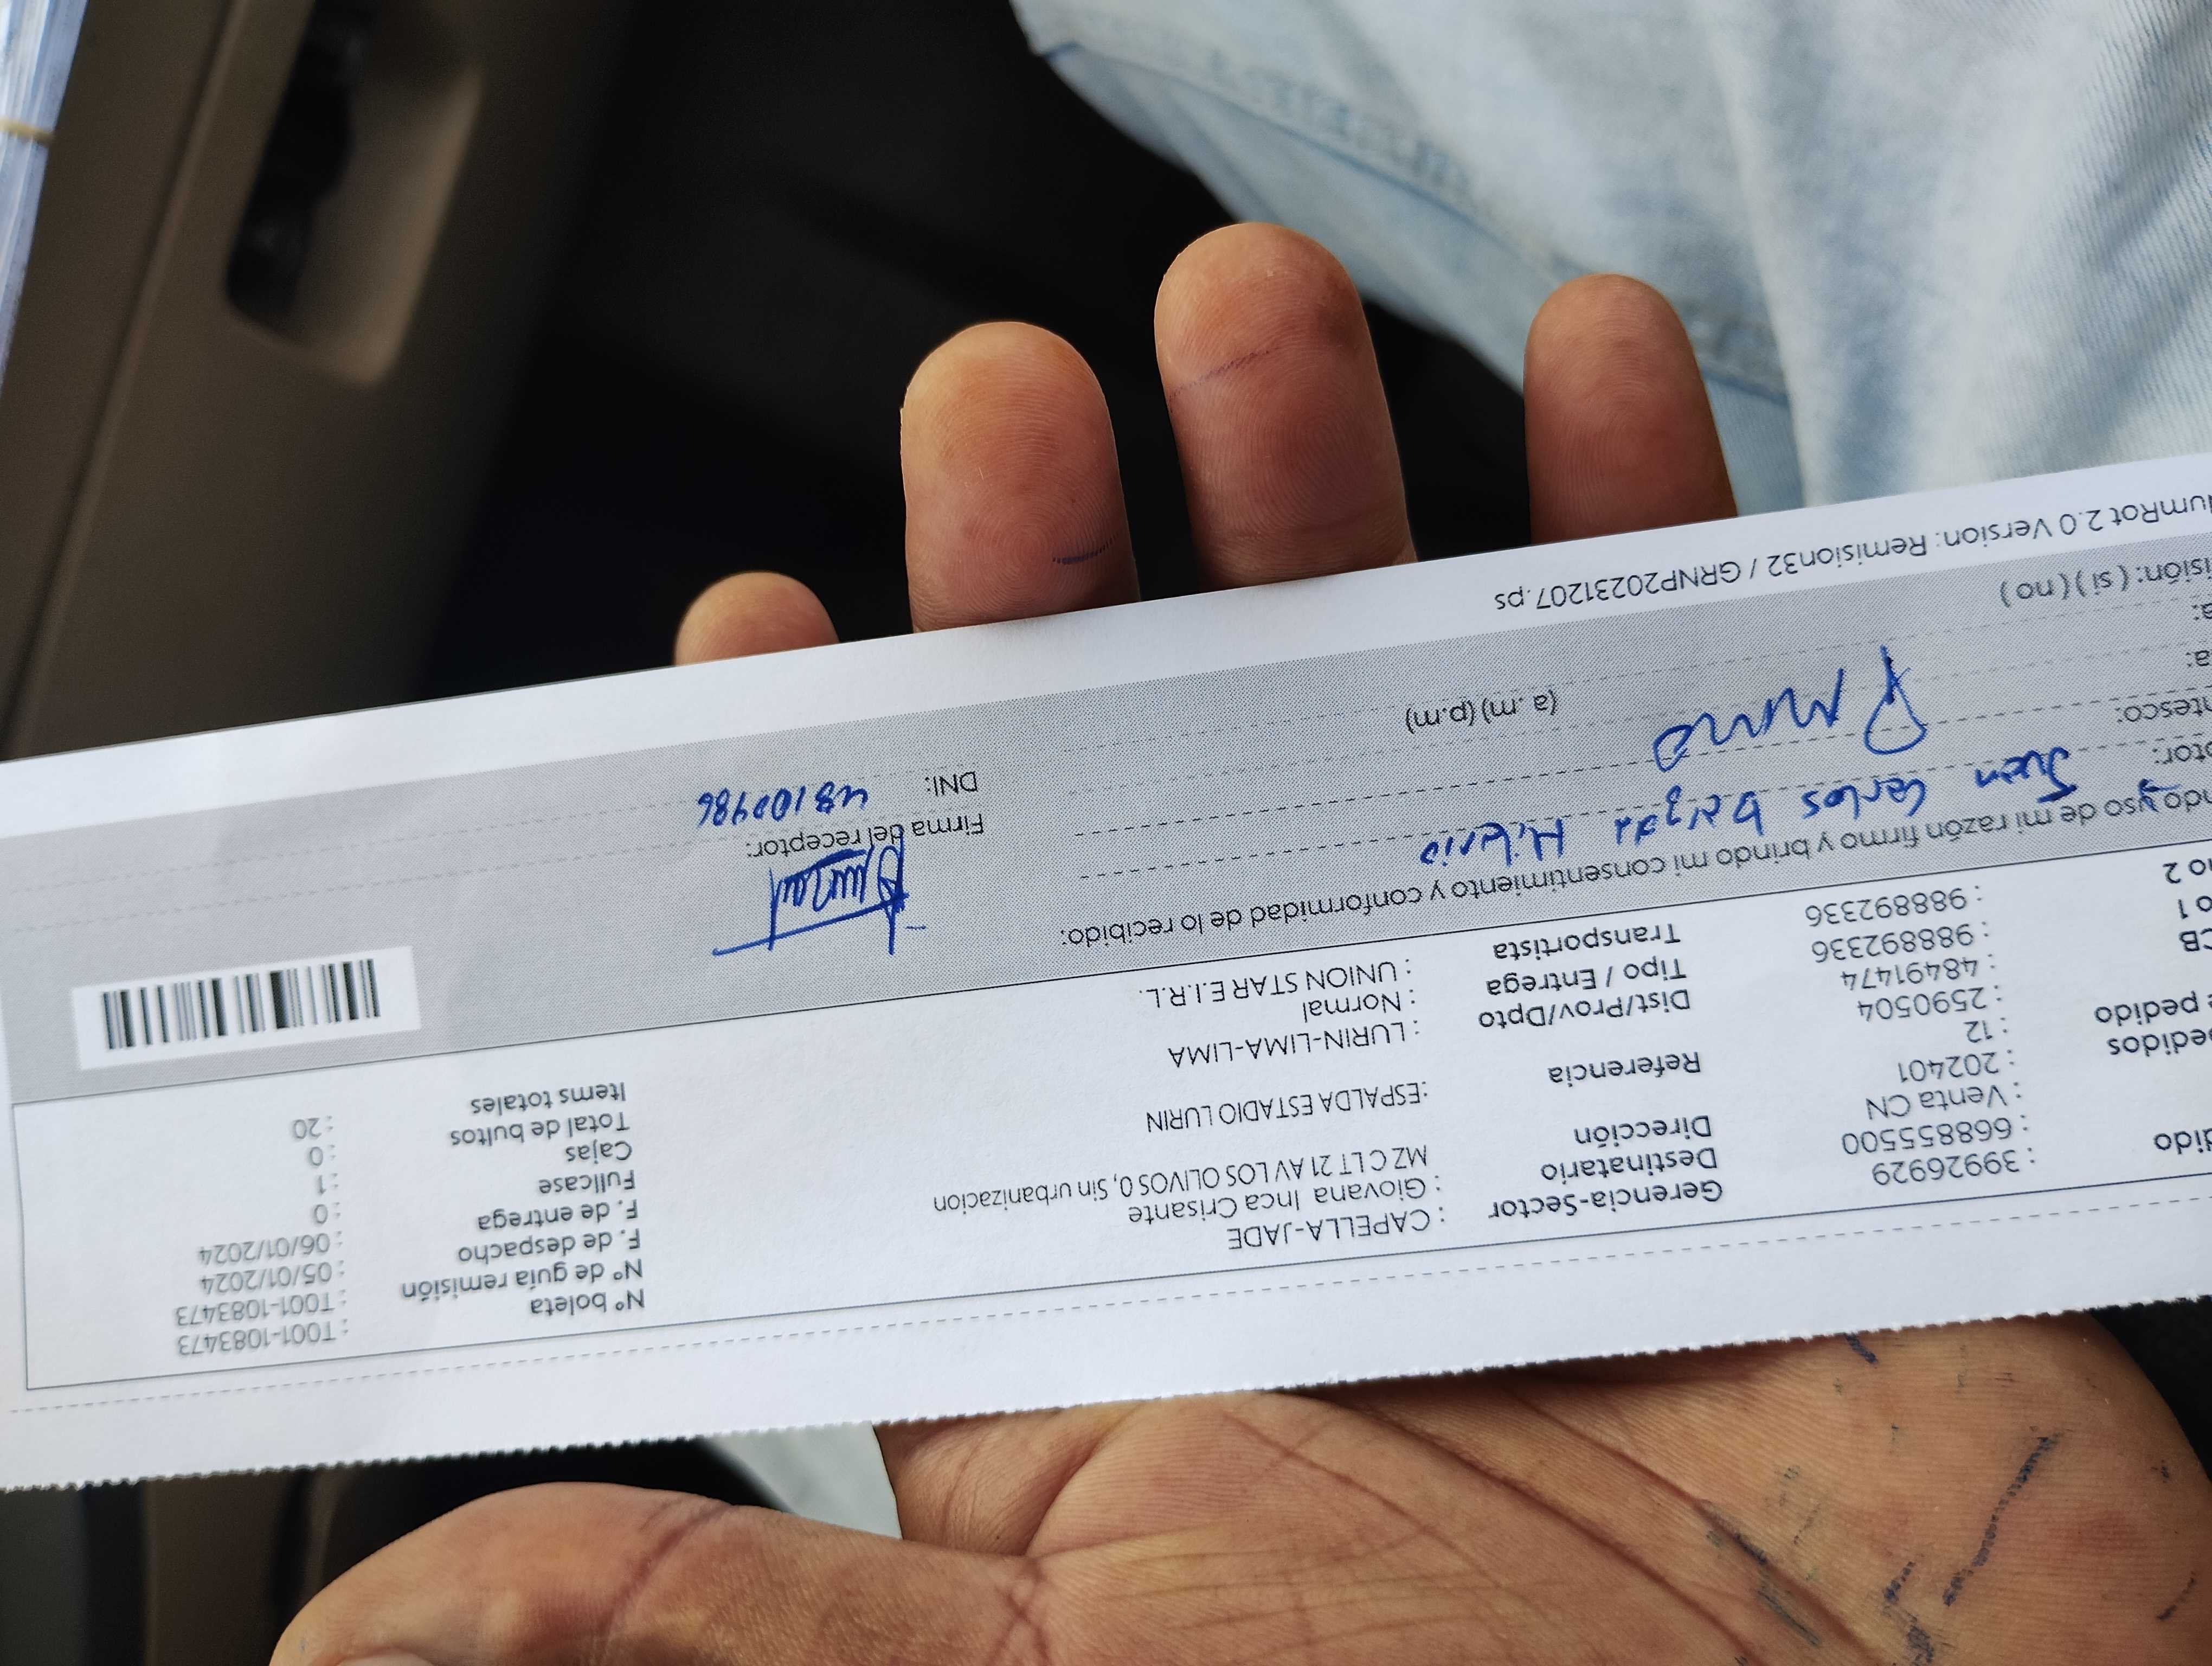 : 39926929 Gerencia-Sector : CAPELLA-JADE Nº boleta : T001-1083473
dido : 668855500 Destinatario : Giovana Inca Crisante Nº de guía remisión : T001-1083473
: Venta CN Dirección MZ C LT 21 AV LOS OLIVOS 0, Sin urbanizacion F. de despacho : 05/01/2024
: 202401 F. de entrega : 06/01/2024
edidos : 12 Referencia :ESPALDA ESTADIO LURIN Fullcase : 0
e pedido : 2590504 Cajas : 1
CB : 48491474 Dist/Prov/Dpto : LURIN-LIMA-LIMA Total de bultos : 0
o 1 : 988892336 Tipo / Entrega : Normal Items totales : 20
no 2 : 988892336 Transportista : UNION STAR E.I.R.L.
ndo uso de mi razón firmo y brindo mi consentimiento y conformidad de lo recibido:
ptor: Juan Carlos Hilario
ntesco: Firma del receptor:
a: (a .m) (p.m) DNI:
a:
isión: ( si ) ( no )
umRot 2.0 Version: Remision32 / GRNP20231207.ps